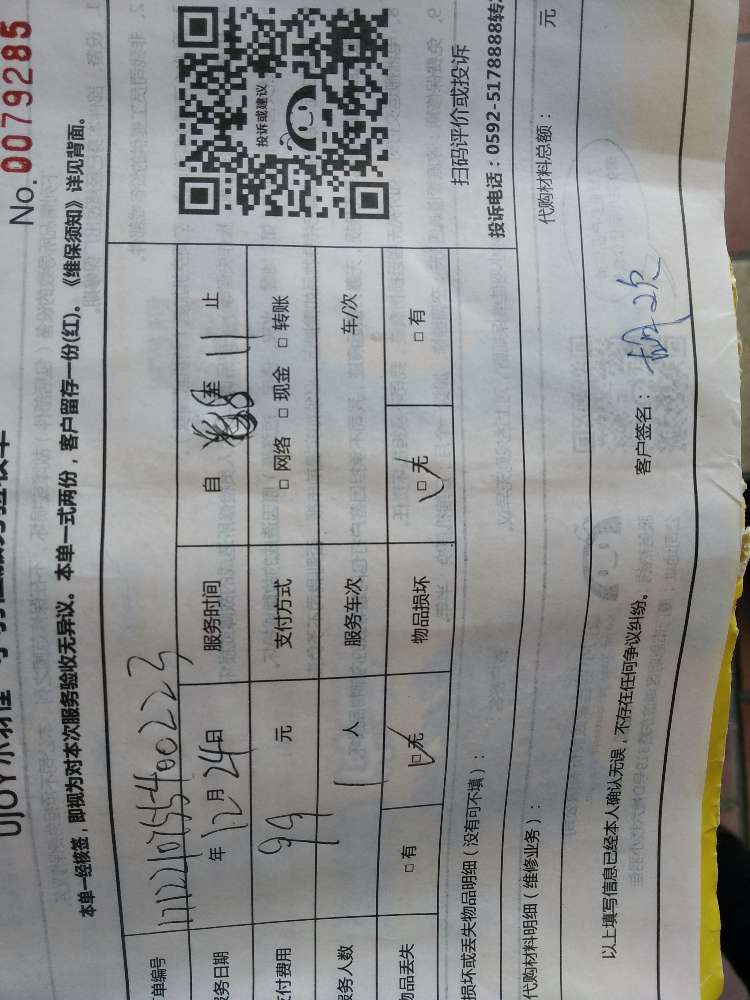 No.0079285
本单一经核签，即视为对本次服务验收无异议。本单一式两份，客户留存一份(红)。《维保须知》详见背面。
单编号
务日期 年 12 月 24 日 服务时间 自 8 至 11 止
付费用 99 元 支付方式 □ 网络 □ 现金 □ 转账
务人数 1 人 服务车次 车/次
品丢失 □ 有 □ 无 物品损坏 □ 无 □ 有
投诉或建议
扫码评价或投诉
投诉电话：0592-5178888转
损坏或丢失物品明细（没有可不填）：
代购材料明细（维修业务）： 代购材料总额： 元
以上填写信息已经本人确认无误，不存在任何争议纠纷。 客户签名：